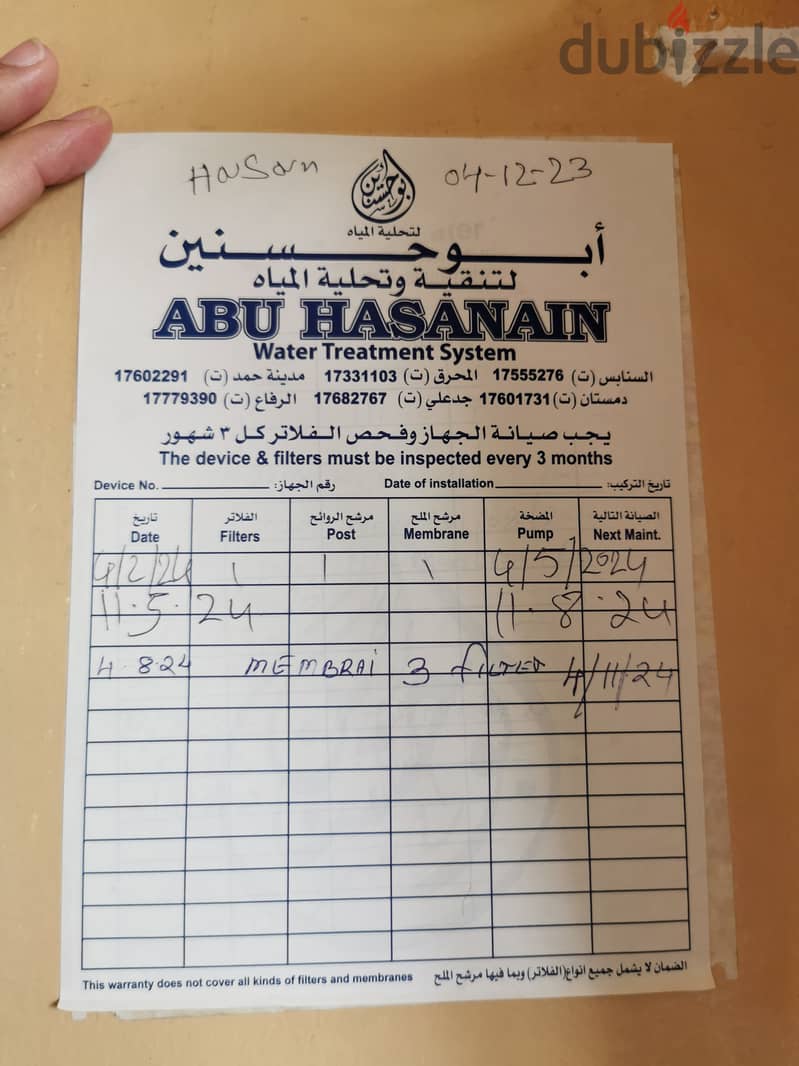 dubizzle
HaSan 04-12-23
أبو حسنين
لتحلية المياه
أبو حسنين
لتنقية وتحلية المياه
ABU HASANAIN
Water Treatment System
السنابس (ت) 17555276 المحرق (ت) 17331103 مدينة حمد (ت) 17602291
دمستان (ت) 17601731 جدعلي (ت) 17682767 الرفاع (ت) 17779390
يجب صيانة الجهاز وفحص الفلاتر كل ٣ شهور
The device & filters must be inspected every 3 months
Device No. رقم الجهاز: Date of installation تاريخ التركيب:
تاريخ الفلاتر مرشح الروائح مرشح الملح المضخة الصيانة التالية
Date Filters Post Membrane Pump Next Maint.
4/2/24 \ | \ 4/5/2024
11.5.24 11.8.24
4.8.24 MEMBRAI 3 FILTER 4/11/24
This warranty does not cover all kinds of filters and membranes الضمان لا يشمل جميع انواع(الفلاتر) وبما فيها مرشح الملح